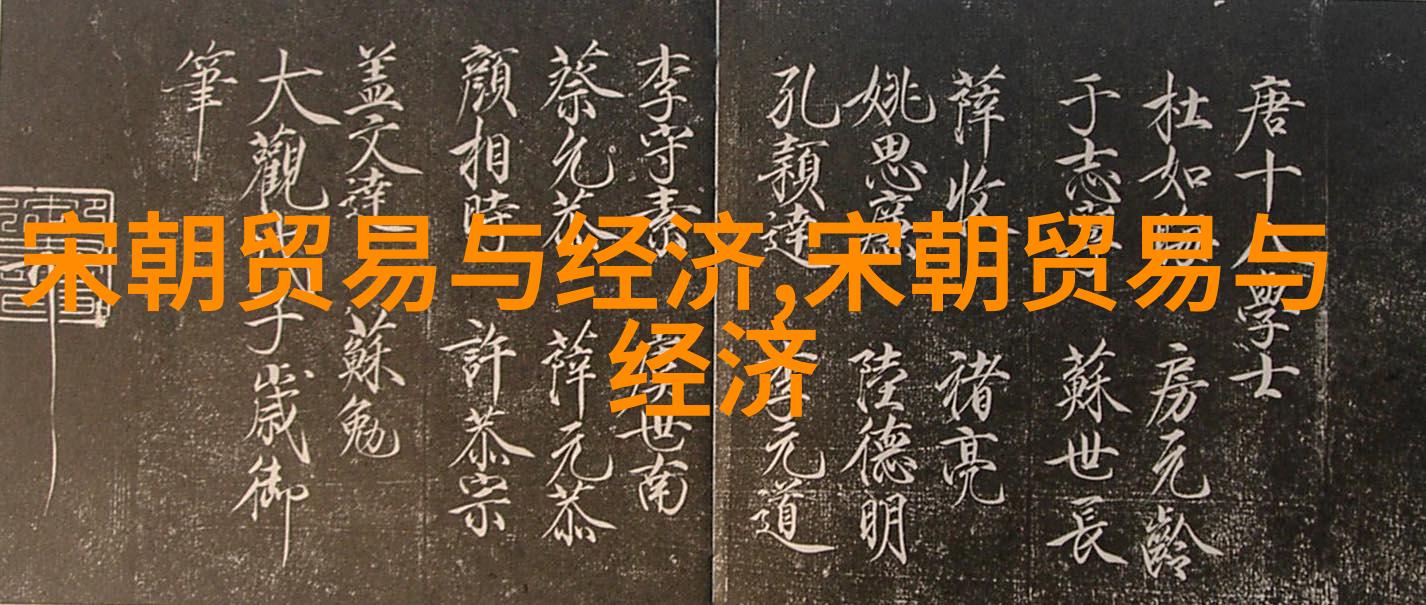 宋朝贸易与经济,宋朝贸易与
经济
唐十八學士
杜如 房元齡
于志寧 蘇世長
薛收 褚亮
姚思廉 陸德明
孔穎達 李元道
李守素 虞世南
蔡元恭 薛元恭
顏相時 許恭宗
盖文達 蘇勉
大觀戊子歲御
筆